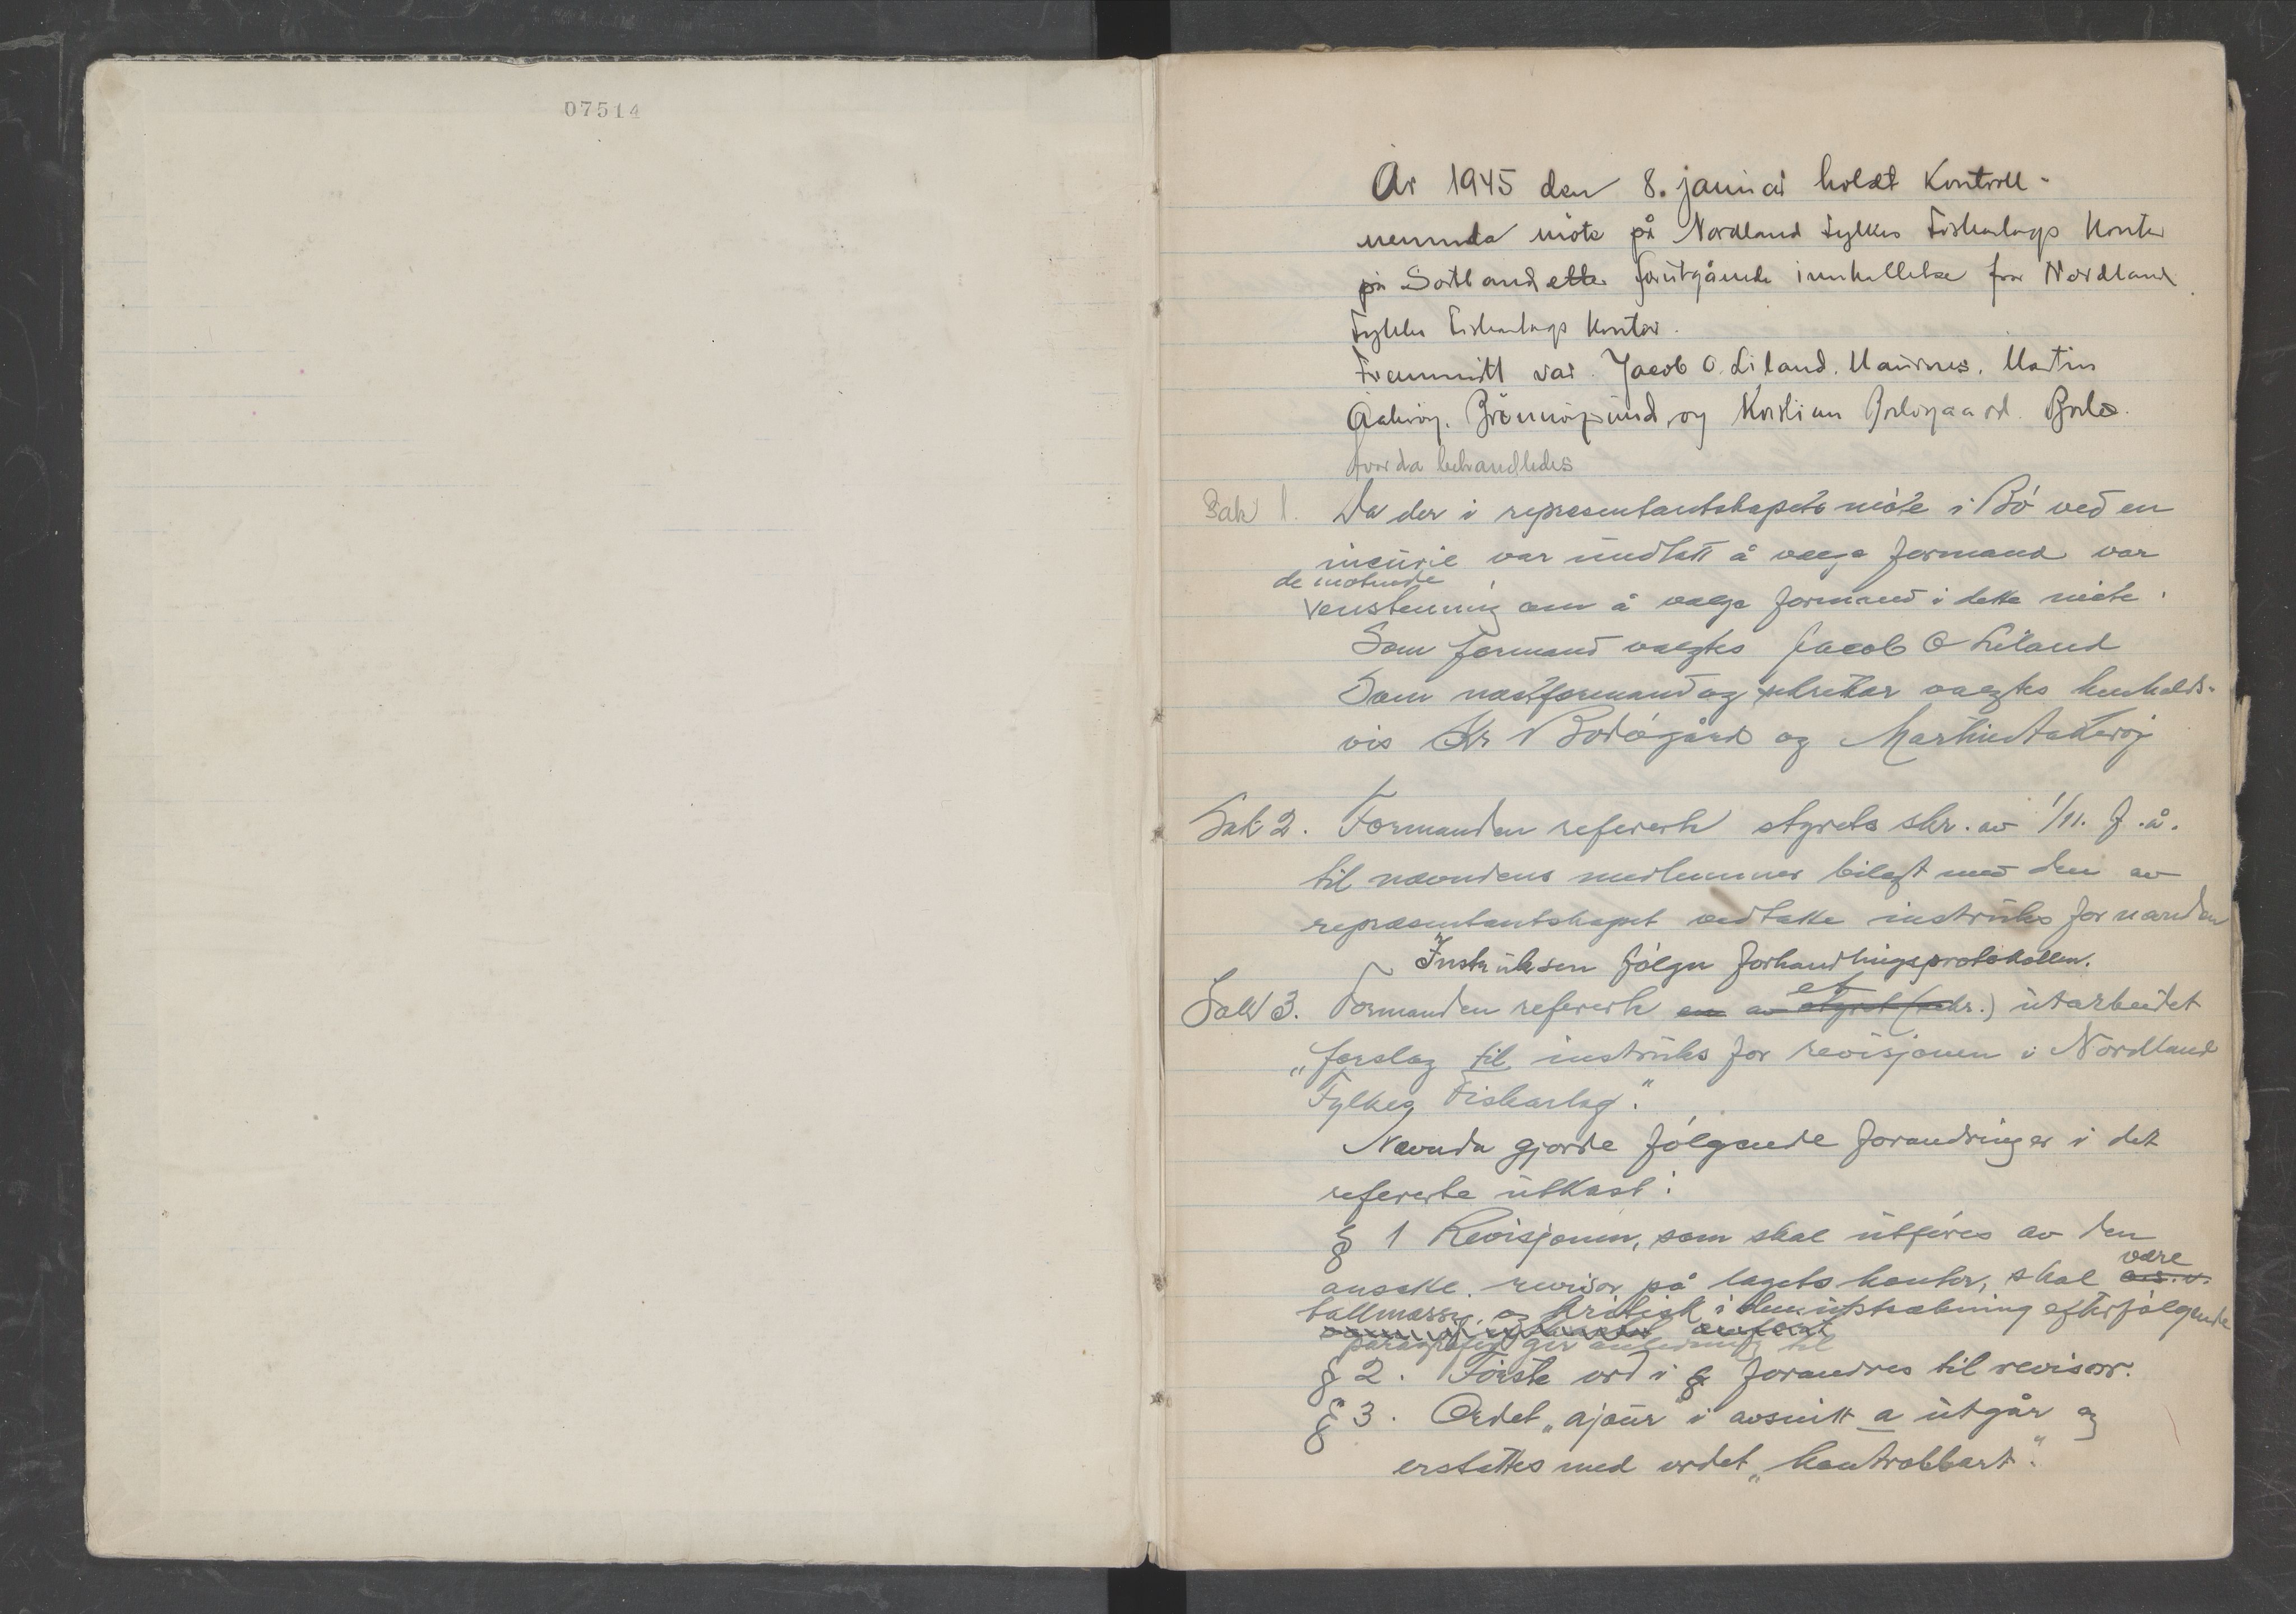 07514
År 1945 den 8. januar holdt Kontroll-
nemnda møte på Nordland Fylkes Fiskarlags Kontor
på Sortland etter forutgående innkallelse fra Nordland
Fylkes Fiskarlags Kontor.
Fremmøtt var Jacob O. Liland. Maurnes. Martin
Aakerøy. Brønnøysund, og Kristian Bodøgaard. Bodø.
hvorda behandledes
Sak 1. Da der i representantskapets møte i Bø ved en
incurie var undlatt å velge formand var
de møtende
enstemmig om å velge formand i dette møte.
Som formand valgtes Jacob O Liland
Som næstformand og sekretær valgtes henholds-
vis Kr Bodøgård og Martin Aakerøy
Sak 2. Formanden refererte styrets skr. av 1/11. f.å.
til nævndens medlemmer bilagt med den av
representantskapet vedtatte instruks for nævnden
Instruksen følger forhandlingsprotokollen.
Sak 3. Formanden refererte en av et styret (sekr.) utarbeidet
"forslag til instruks for revisjonen i Nordland
Fylkes Fiskarlag".
Nævnda gjorde følgende forandringer i det
refererte utkast:
§ 1 Revisjonen, som skal utføres av den
ansatte revisor på lagets kontor, skal være
tallmessig og kritisk i den utstrækning efterfølgende
paragrafer gir anledning til
§ 2. Første ord i § forandres til revisor.
§ 3. Ordet "ajour" i avsnitt a utgår og
erstattes med ordet "kontrollbart".